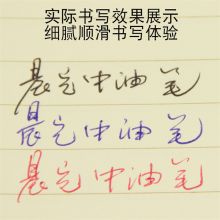 实际书写效果展示
细腻顺滑书写体验
晨光中油笔
晨光中油笔
晨光中油笔